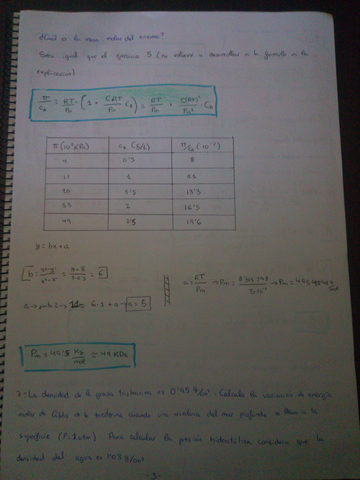 ¿Cuál es la masa molar del mismo?
Será igual que el ejercicio 5 (no vuelvo a desarrollar la fórmula ni la
explicación)
π/C₂ = RT/Pm · (1 + CRT/Pm C₂) = RT/Pm +
π (10³ Pa) C₂ (g/L) π/C₂ (·10⁻³)
4 0'5 8
11 1 11
20 1'5 13'3
33 2 16'5
49 2'5 19'6
y = bx + a
b = = = 6
a → punto 2 → 11 = 6·1 + a → a = 5
a = RT/Pm → Pm =
Pm = Kg/mol ≈ 49 KDa
7.- La densidad de la grasa tristearina es 0'95 g/cm³. Calcula la variación de energía
molar de Gibbs de la triestearina cuando una criatura del mar profundo la lleva a la
superficie (P: 1 atm). Para calcular la presión hidrostática considera que la
densidad del agua es 1'03 g/cm³.